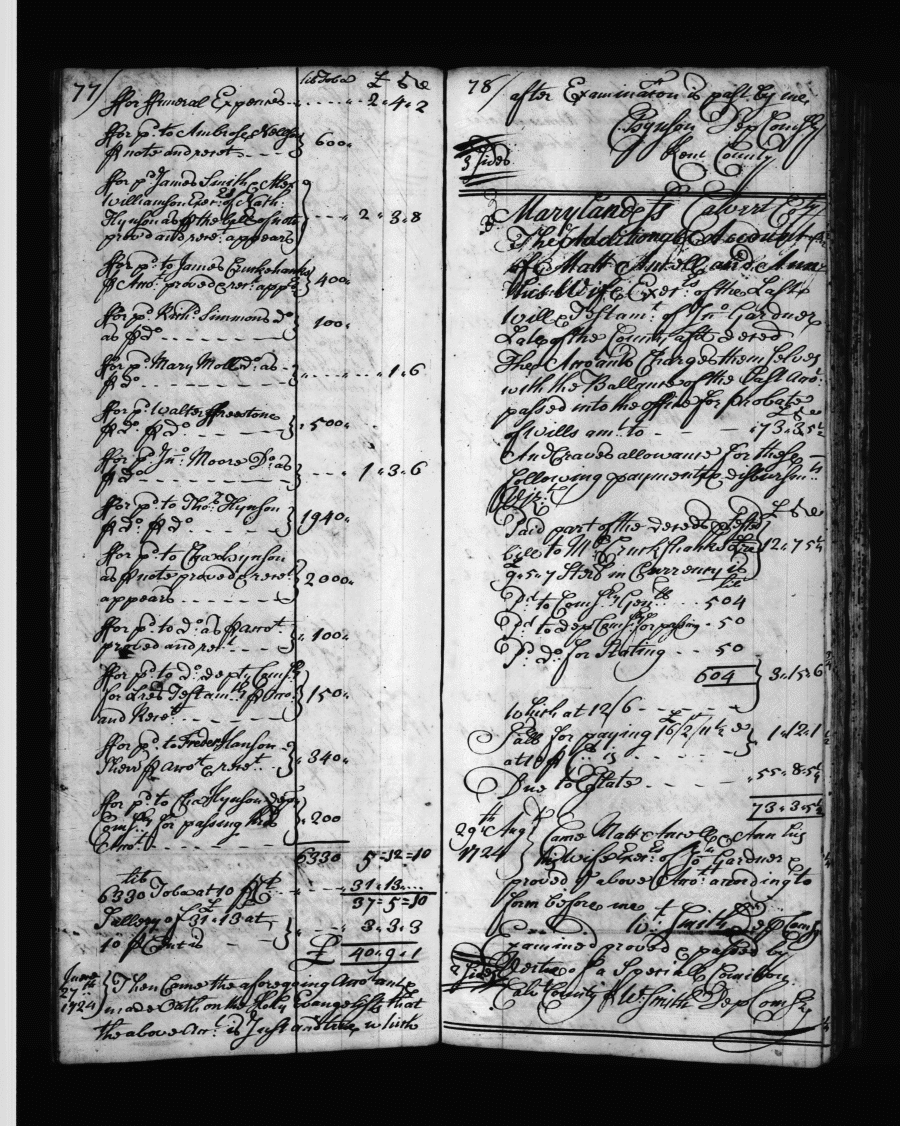 77/
lib Toba £ S d
ffor ffuneral Expences 2 . 4 . 2
ffor pd. to Ambrose Nelson
p note and recet. } 600
ffor pd. James Smith & Alex
Williamson Exer. of Nath:
Hynson as p the of note
proved and rect. appears } 2 . 3 . 8
ffor pd. to James Cruikshanks
p Accot. proved & rect. appr. } 400
ffor pd. Richd. Simmons do
as p do } 100
ffor pd. Mary Moll do. as
p do. 1 . 6
ffor pd. Walter ffreestone
p do. p do. } 500
ffor pd. Jno. Moore Do. as
p do } 1 . 3 . 6
ffor pd. to Thos. Hynson
p do. p do } 1940
ffor pd. to Cha. Hynson
as p note proved & rect.
appears } 2000
ffor pd. to do. as p accot.
proved and rect. } 100
ffor pd. to do. depty. Comsry
for Lres Testamty. p Acco
and Recet. } 150
ffor pd. to Freder. Hanson
Sheriff p Accot. & recet. } 340
ffor pd. to Cha. Hynson depy
Comsry. for passing this
Accot. } 200
6330 5=12=10
lib
6330 Toba at 10 p Ct. 31 . 13 . ...
37=5=10
Sallery of £31 . 13 at
10 p Cent is } 3 . 3 . 3
£ 40 . 9 . 1
June
27th
1724 } Then Came the aforegoing Accotant &
made Oath on the Holy Evangelist that
the above Accot. is Just and true, which
78/
after Examination is past by me,
Dep Comsry
Kent County
3 sides
Maryland ss Calvert Coty
The Additional Account
of Matt: Ancell and Ann
his Wife Exers. of the Last
Will & Testamt. of Jno. Gardner
Late of the County aforsd deced
The Accotants Charges themselves
with the Ballance of the Last Acco:
passed into the office for probate
of Wills amt. to 173 . 3 . 5¼
And Craves allowance for these
following payments & disbursmts
Vizt
£ S d
Paid part of the deceds protestd
bill to Mr. Cruickshanks
9 . 5 . 7 Sterl in Currency is } 12 . 7 5¼
Pd. to Comsry Genll 504
Pd. to dep Comsry for passing 50
Pd. do. for Stating 50
604 } 3 . 15 . 6
Which at 12/6
Sall: for paying 16/2/11½
at 10 p Ct. is } 1 . 12 . 1
Due to Estate 55 . 8 . 5¼
73 . 3 . 5¼
29th Aug
1724 } Came Matt: Ancell & Ann his
his Wife Exers. of Jo. Gardner &
proved ye above Accot. according to
form before me
Wt. Smith Dep Comsry
2 sides
Examined proved & passed by
Vertue of a Speciall Comition
Calv County p W. Smith Dep Comsry